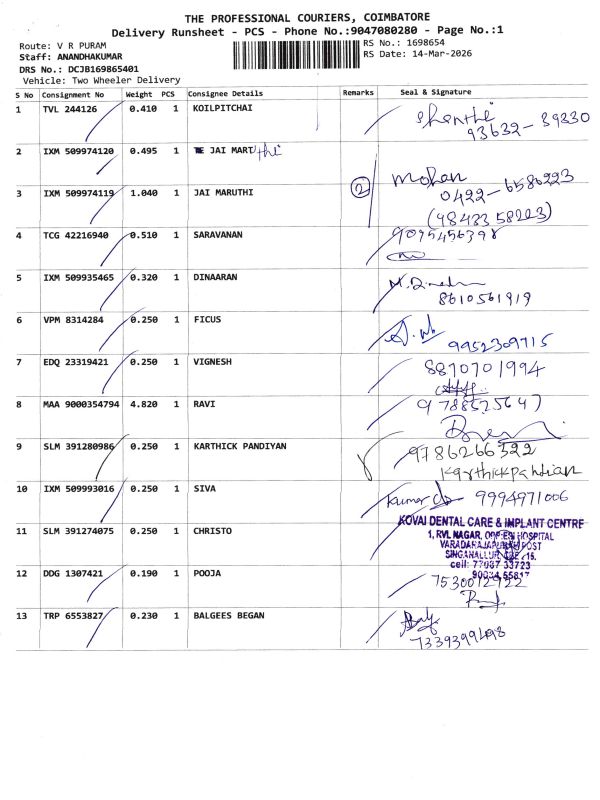 THE PROFESSIONAL COURIERS, COIMBATORE
Delivery Runsheet - PCS - Phone No.:9047080280 - Page No.:1
Route: V R PURAM
RS No.: 1698654
Staff: ANANDHAKUMAR
RS Date: 14-Mar-2026
DRS No.: DCJB169865401
Vehicle: Two Wheeler Delivery
S No Consignment No Weight PCS Consignee Details Remarks Seal & Signature
1 TVL 244126 0.410 1 KOILPITCHAI Shanthi
93632-89330
2 IXM 509974120 0.495 1 JAI MARUthi
3 IXM 509974119 1.040 1 JAI MARUTHI 2 Mohan
0422-6586223
(9843358223)
4 TCG 42216940 0.510 1 SARAVANAN 9095456398
5 IXM 509935465 0.320 1 DINAARAN
8610561919
6 VPM 8314284 0.250 1 FICUS
9952309715
7 EDQ 23319421 0.250 1 VIGNESH 8870701994
8 MAA 9000354794 4.820 1 RAVI 9788525647
9 SLM 391280986 0.250 1 KARTHICK PANDIYAN 9786266322
karthickpandian
10 IXM 509993016 0.250 1 SIVA Kumar 9994971006
11 SLM 391274075 0.250 1 CHRISTO KOVAI DENTAL CARE & IMPLANT CENTRE
1, RVL NAGAR, OPP ESI HOSPITAL
VARADARAJAPURAM POST
SINGANALLUR, CBE -15.
cell: 77087 33723
90034 55817
12 DDG 1307421 0.190 1 POOJA 7530012722
13 TRP 6553827 0.230 1 BALGEES BEGAN
7339399498